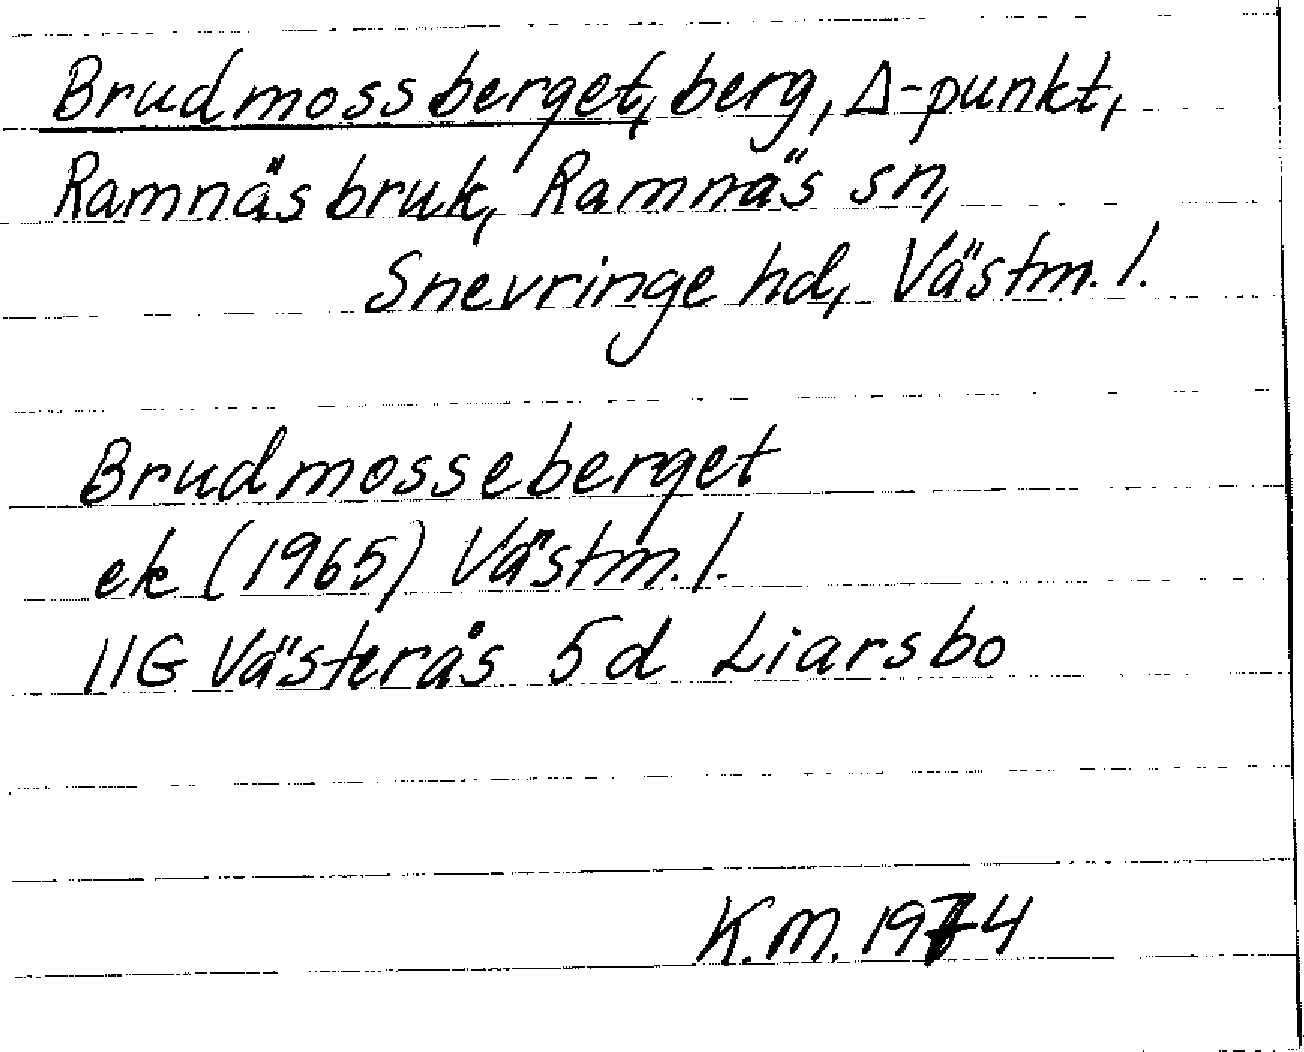 Brudmossberget, berg, Δ-punkt,
Ramnäs bruk, Ramnäs sn,
Snevringe hd, Västm. l.
Brudmosseberget
ek (1965) Västm. l.
11G Västerås 5d Liarsbo
K.M. 1974